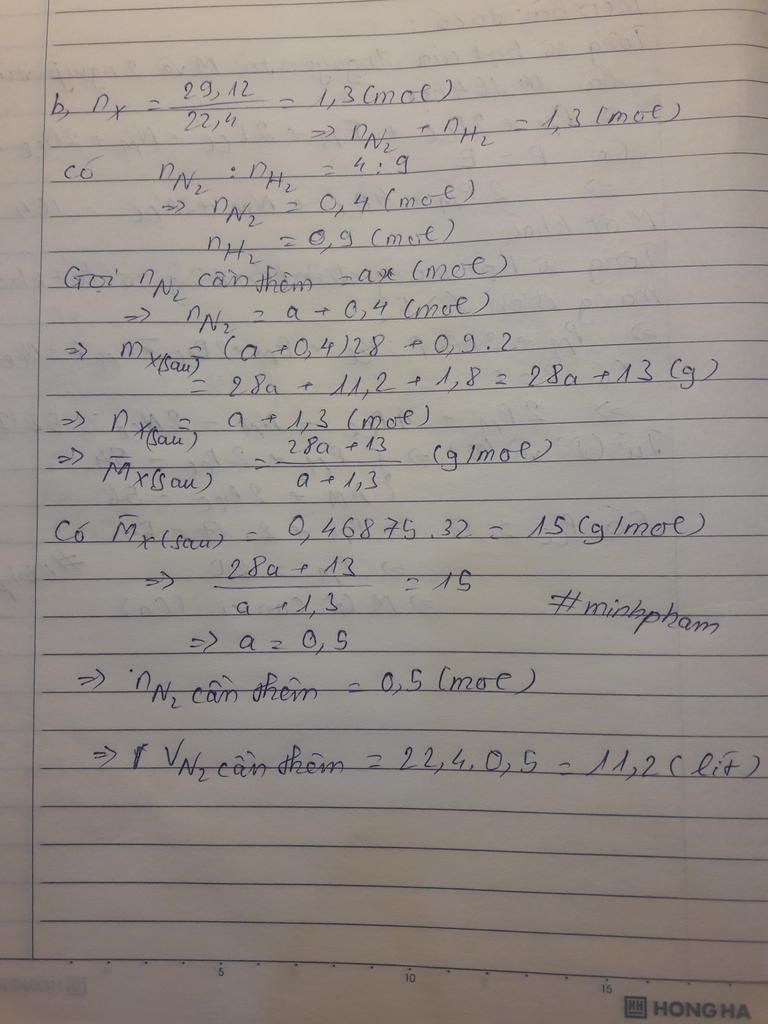 b, nX = 29,12 / 22,4 = 1,3 (mol)
=> nN2 + nH2 = 1,3 (mol)
có nN2 : nH2 = 4 : 9
=> nN2 = 0,4 (mol)
nH2 = 0,9 (mol)
Gọi nN2 cần thêm = a (mol)
=> nN2 = a + 0,4 (mol)
=> mX(sau) = (a + 0,4)28 + 0,9.2
= 28a + 11,2 + 1,8 = 28a + 13 (g)
=> nX(sau) = a + 1,3 (mol)
=> M̄X(sau) = 28a + 13 / a + 1,3 (g/mol)
Có M̄X(sau) = 0,46875.32 = 15 (g/mol)
=> 28a + 13 / a + 1,3 = 15
#minhpham
=> a = 0,5
=> nN2 cần thêm = 0,5 (mol)
=> VN2 cần thêm = 22,4.0,5 = 11,2 (lít)
5 10 15
HONG HA